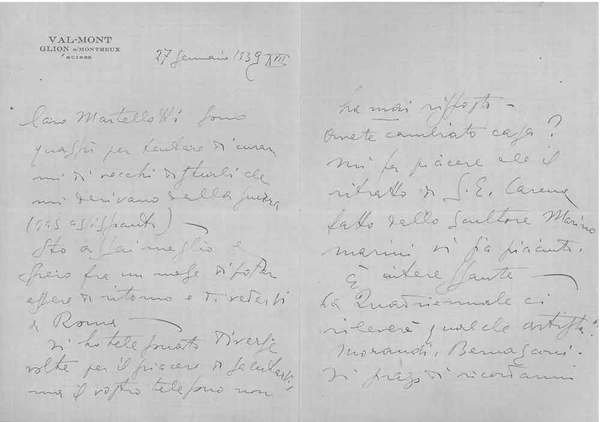 VAL-MONT
GLION s/MONTREUX
SUISSE
27 Gennaio 1939 XVII
Caro Martellotti sono
quassù per tentare di curar
mi di vecchi disturbi che
mi derivano dalla guerra
(gas asfissianti) —
Sto assai meglio e
spero fra un mese di poter
essere di ritorno e di vedervi
a Roma —
Vi ho telefonato diverse
volte per il piacere di salutarvi,
ma il vostro telefono non
ha mai risposto —
Avete cambiato casa?
Mi fa piacere che il
ritratto di S.E.
fatto dallo scultore Marino
Marini vi sia piaciuto.
È interessante —
La Quadriennale ci
rileverà qualche artista?
Morandi,
Vi prego di ricordarmi